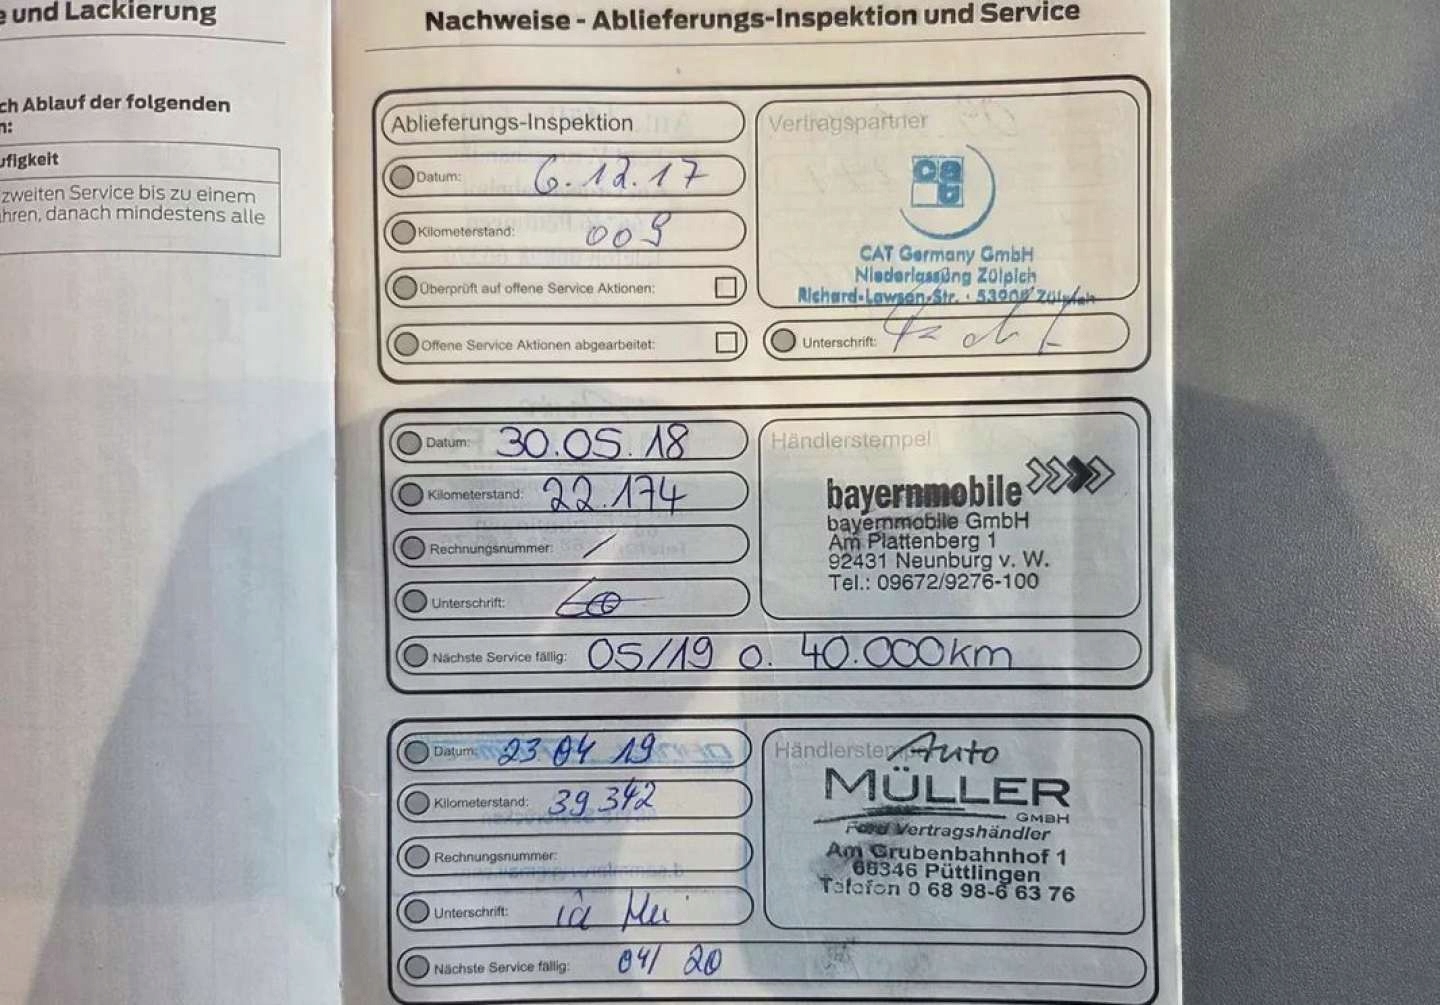 e und Lackierung
ch Ablauf der folgenden
n:
ufigkeit
zweiten Service bis zu einem
ahren, danach mindestens alle
Nachweise - Ablieferungs-Inspektion und Service
Ablieferungs-Inspektion
Datum: 6.12.17
Kilometerstand: 009
Überprüft auf offene Service Aktionen:
Offene Service Aktionen abgearbeitet:
Vertragspartner
cat
CAT Germany GmbH
Niederlassung Zülpich
Richard-Lawson-Str. · 53909 Zülpich
Unterschrift:
Datum: 30.05.18
Kilometerstand: 22.174
Rechnungsnummer: /
Unterschrift:
Nächste Service fällig: 05/19 o. 40.000km
Händlerstempel
bayernmobile
bayernmobile GmbH
Am Plattenberg 1
92431 Neunburg v. W.
Tel.: 09672/9276-100
Datum: 23 04 19
Kilometerstand: 39 342
Rechnungsnummer:
Unterschrift:
Nächste Service fällig: 04/ 20
Händlerstempel
Auto
MÜLLER
GMBH
Ford Vertragshändler
Am Grubenbahnhof 1
66346 Püttlingen
Telefon 0 68 98-6 63 76